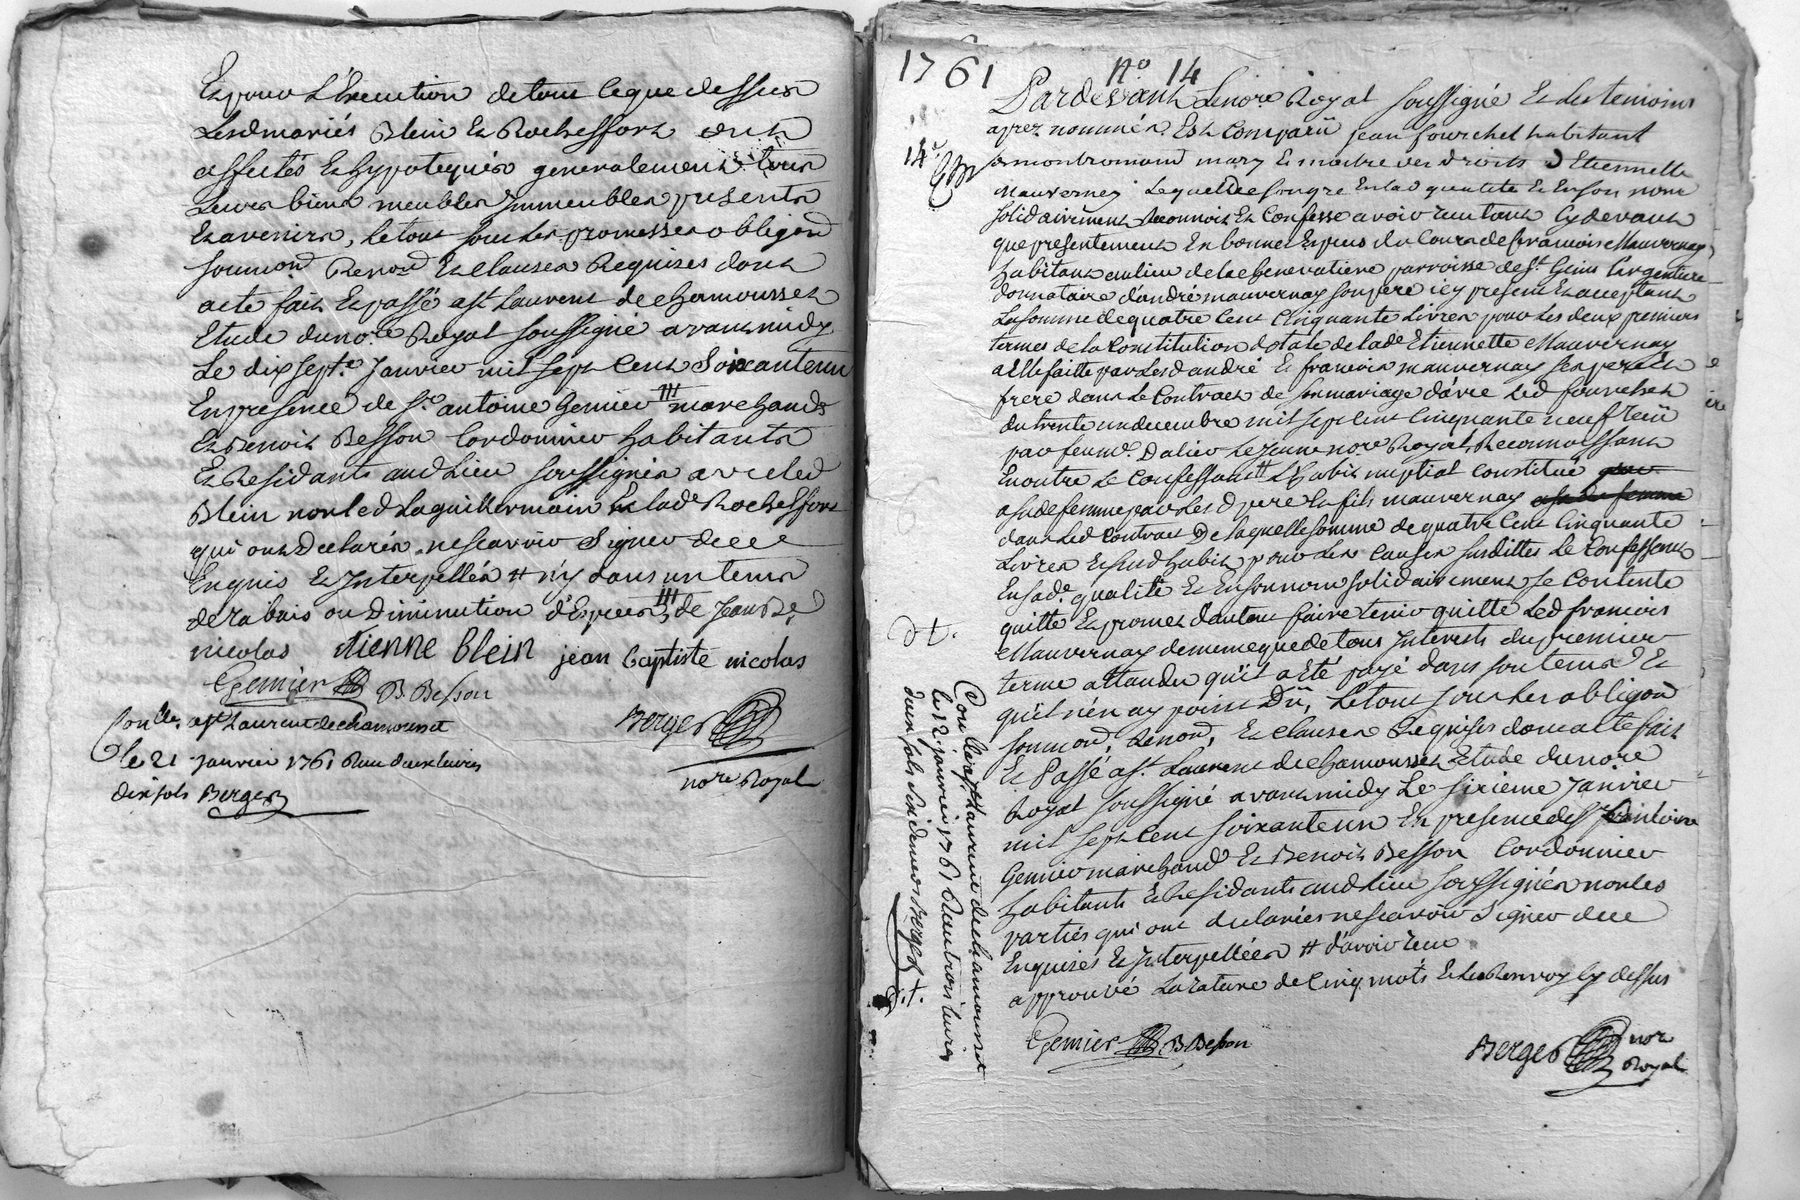 Et pour L'Execution de tout ce que dessus
Lesd mariés Blein Et Rocheffort ont
affectés Et hypotequés generalement tous
Leurs biens meubles Immeubles presents
Et avenirs, le tout sous les promesses obligõns
soumõns Renõns Et clauses Requises dont
acte fait Et passé a St Laurent de chamousset
Etude du no.re Royal soussigné avant midy
Le dix sept.e Janvier mil sept cent Soixante un
En presence de Sr antoine Gemier marchand
Et Benoit Besson Cordonnier habitants
Et Residants aud Lieu soussignés avec led
Blein non led Laguillermain Et lad.e Rocheffort
qui ont Declarés ne scavoir signer de ce
Enquis Et Interpellés # n'y dans un tems
de rabais ou Diminution d'Especes, de Jean Bte
nicolas etienne blein jean baptiste nicolas
Gemier B Besson
Berger
no.re Royal
Con.lle a st Laurent de chamousset
le 21 janvier 1761 Reçu deux livres
dix sols Berger
1761 N.o 14
14.e
Pardevant Le no.re Royal soussigné Et les temoins
apres nommés Est Comparü jean fourchet habitant
a montromand mary Et maitre des droits d'Etiennette
Mauvernay Lequel de son gre En lad qualité Et En son nom
solidairement Reconnoit Et Confesse avoir reçu tant cy devant
que presentement En bonnes Especes du Cours de francois Mauvernay
habitant au lieu de la chenevatiere parroisse de St Genis l'argentiere
donnataire d'andré mauvernay son pere icy present Et acceptant
La somme de quatre Cent Cinquante Livres pour Les deux premiers
termes de la Constitution dotale de lad.e Etiennette Mauvernay
a Elle faitte par Les d andré Et francois mauvernay ses pere Et
frere dans Le Contract de son mariage d'avec Led fourchet
du trente un decembre mil sept cent cinquante neuf reçü
par feu m.e Dalier le jeune no.re Royal, Reconnoissant
En outre Le Confessant # L'habit nuptial constitué par
a sad femme par Les d pere Et fils mauvernay a sad femme
dans Led Contract De laquelle somme de quatre Cent Cinquante
Livres Et sud habit pour Les Causes susdittes Le Confessant
En sad.e qualité Et En son nom solidairement se Contente
quitte Et promet d'autant faire tenir quitte Led francois
Mauvernay de meme que de tous Interests du premier
terme attandu qu'il a Eté payé dans son tems Et
qu'il n'en ay point Dü, Le tout sous Les obligõns
soumõns, Renõns, Et clauses Requises dont acte fait
Et Passé a St. Laurent de chamousset Etude du no.re
Royal soussigné avant midy Le sixieme Janvier
mil sept cent soixante un En presence de Sr antoine
Gemier marchand Et Benoit Besson Cordonnier
habitants Et Residants aud Lieu soussignés non les
parties qui ont declarées ne scavoir signer de ce
Enquises Et Interpellées # d'avoir reçu
approuvé La rature de Cinq mots Et Le Renvoy Cy dessus
Gemier B Besson
Berger no.re
Royal
d t.
Con.lle a st Laurent de chamousset
le 12 janvier 1761 Reçu trois livres
douze sols six deniers Berger
d.t.